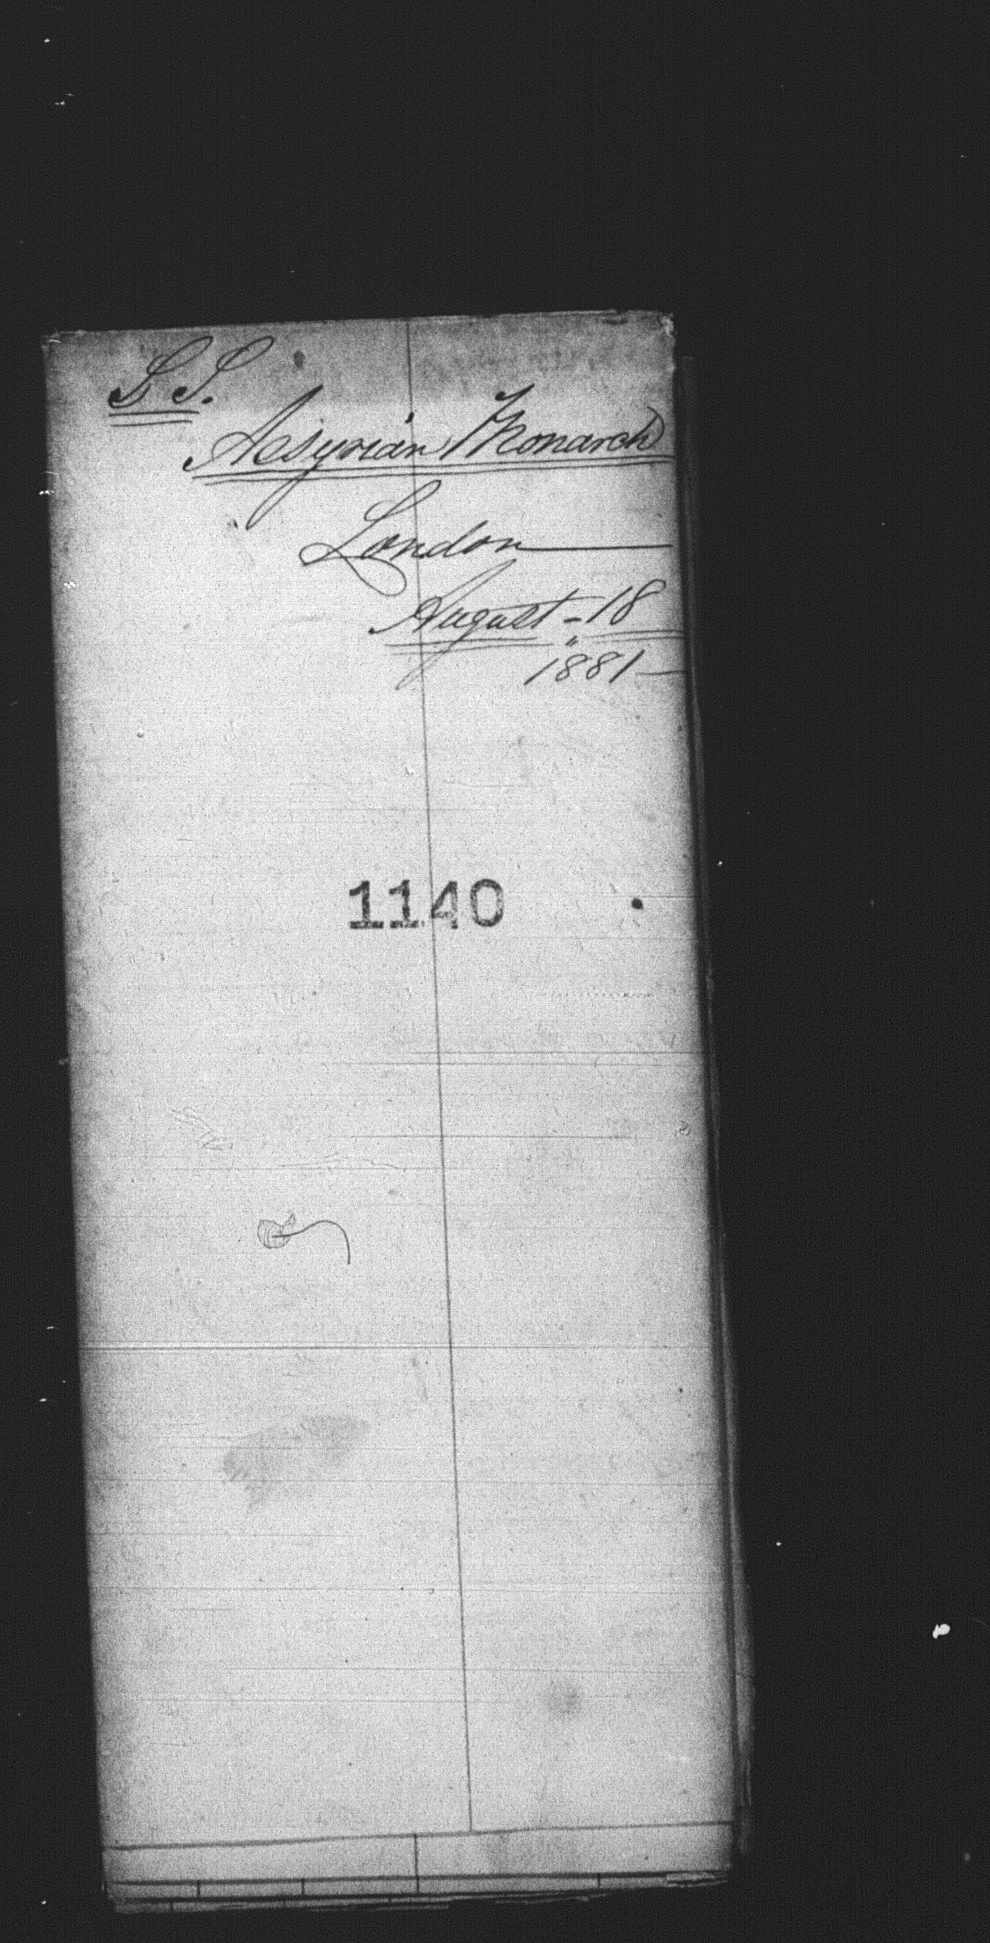 S S.
Assyrian Monarch
London
August - 18
" 
1881 -
1140